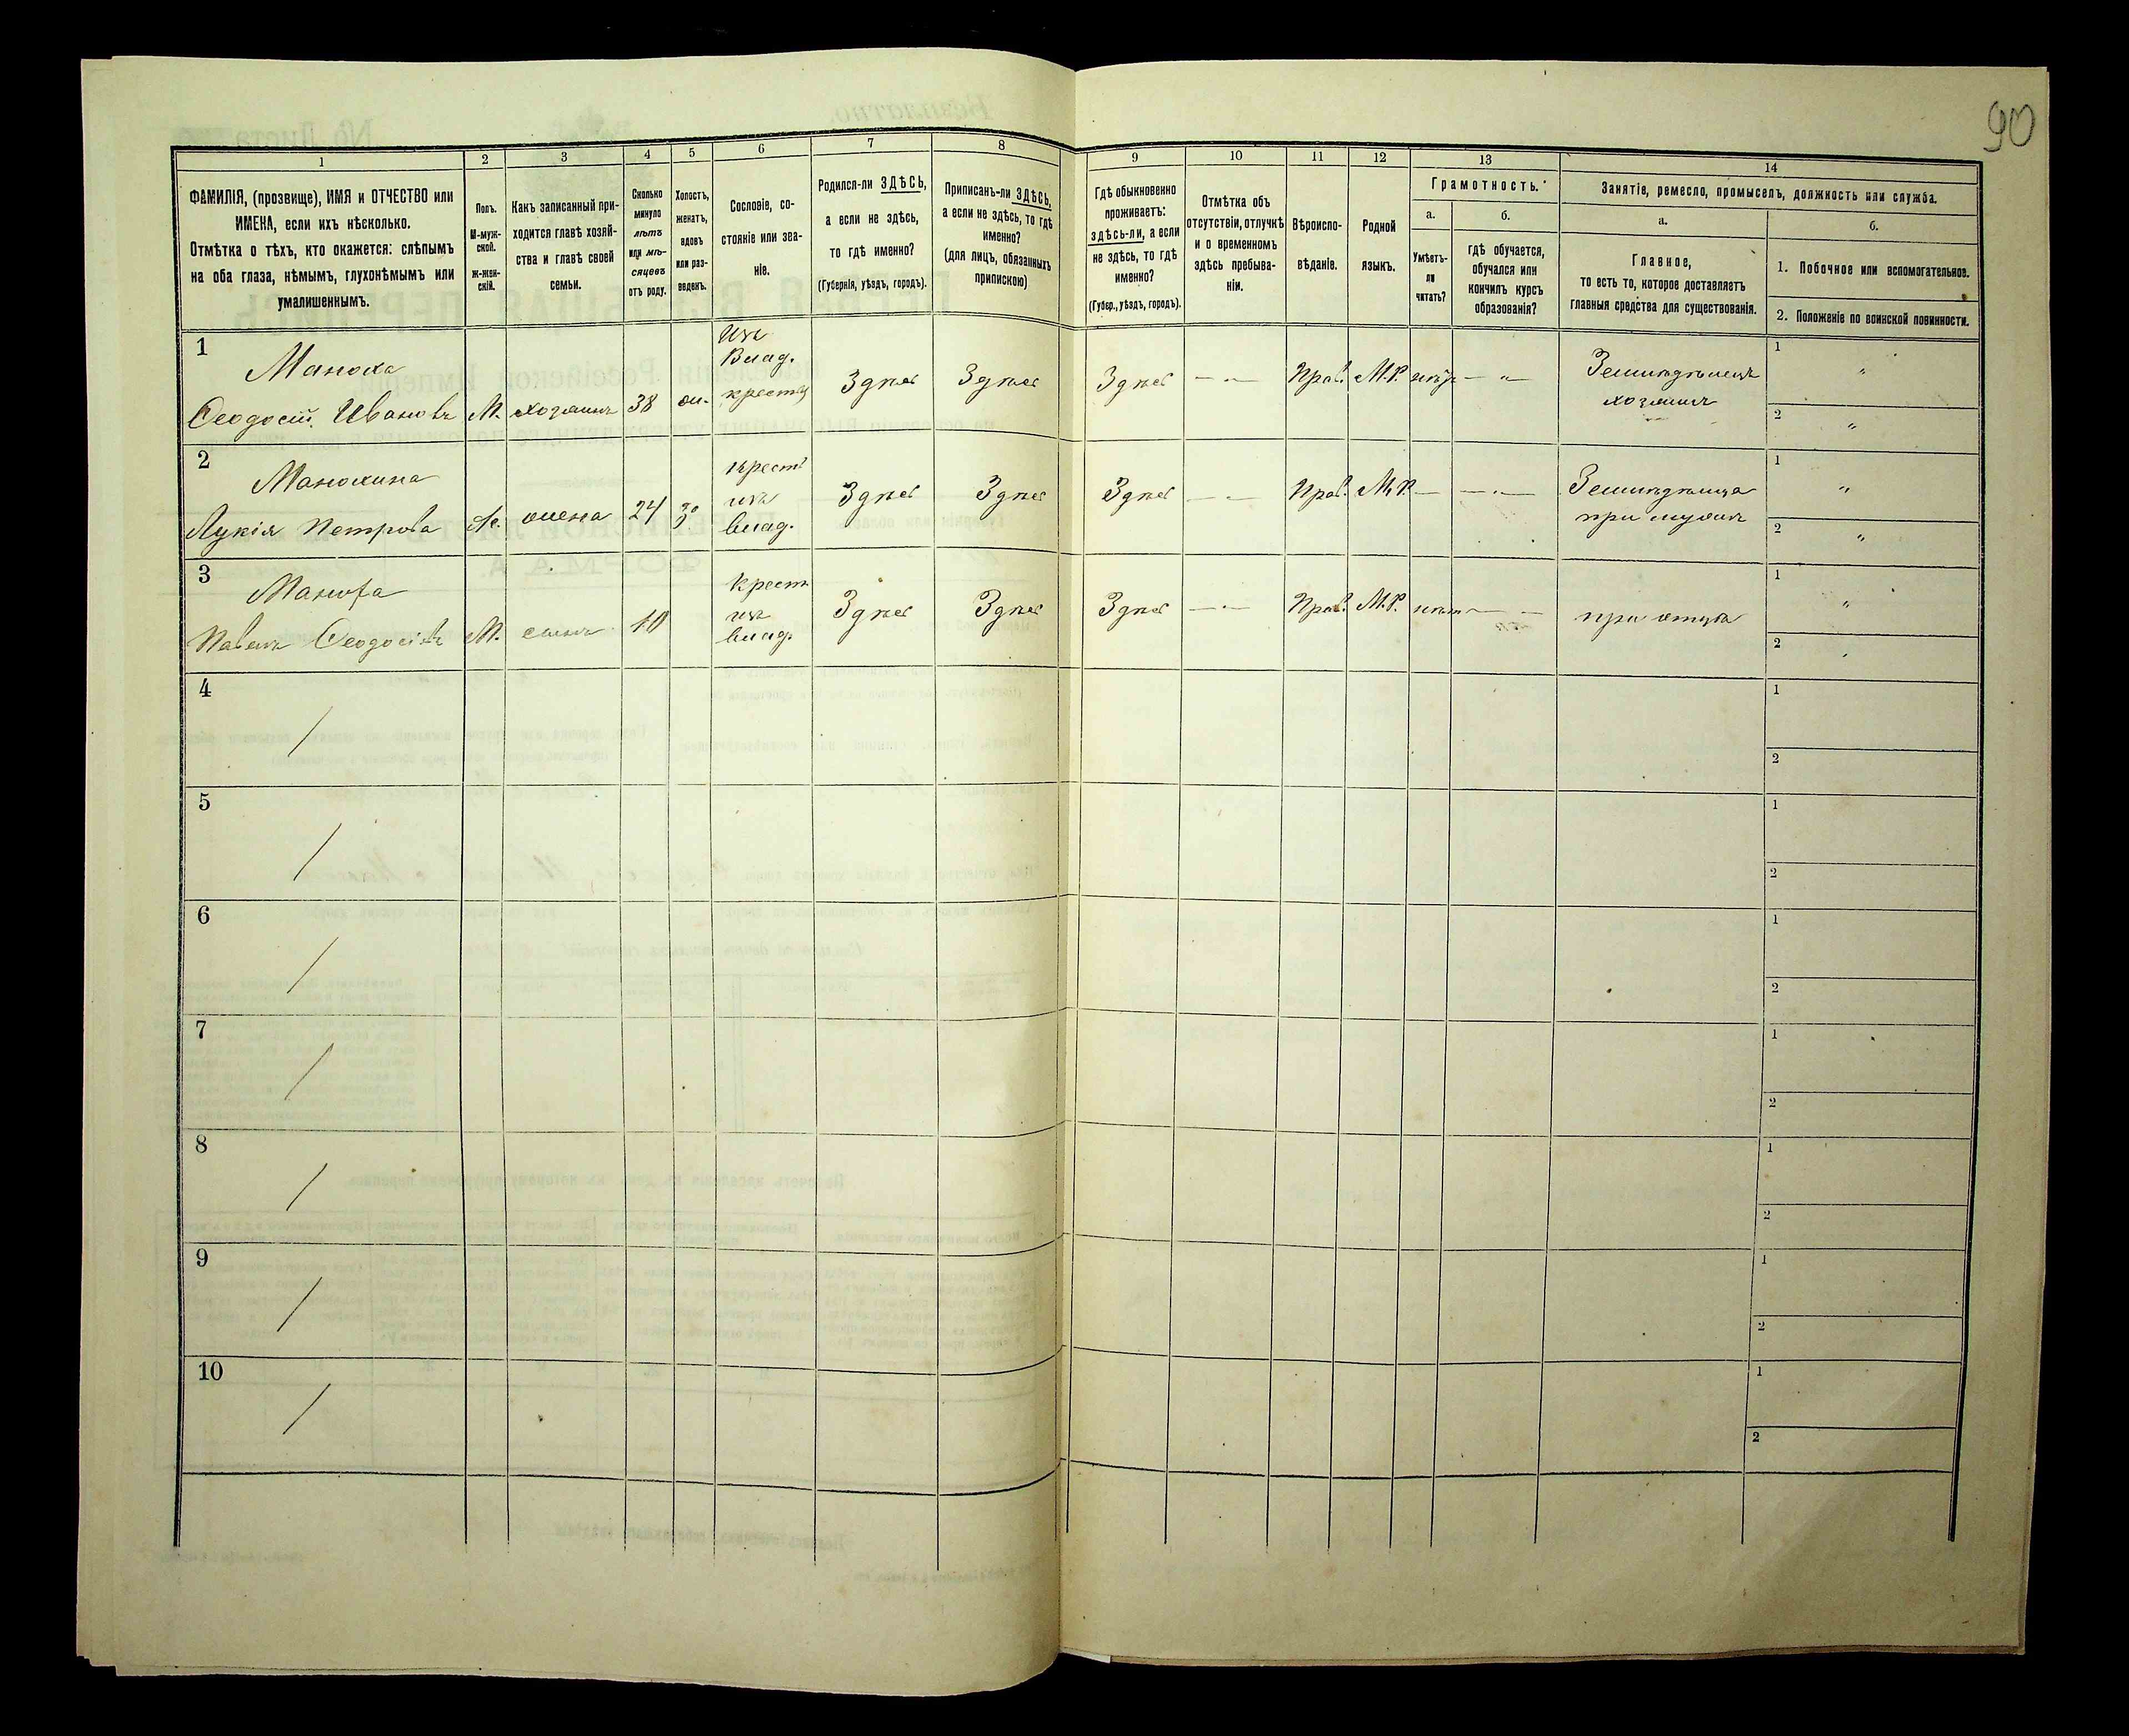 90
1
2
3
4
5
6
7
8
9
10
11
12
13
14
ФАМИЛІЯ, (прозвище), ИМЯ и ОТЧЕСТВО или
ИМЕНА, если ихъ нѣсколько.
Отмѣтка о тѣхъ, кто окажется: слѣпымъ
на оба глаза, нѣмымъ, глухонѣмымъ или
умалишеннымъ.
Полъ.
М-муж-
ской.
Ж-жен-
скій.
Какъ записанный при-
ходится главѣ хозяй-
ства и главѣ своей
семьи.
Сколько
минуло
лѣтъ
или мѣ-
сяцевъ
отъ роду.
Холостъ,
женатъ,
вдовъ
или раз-
веденъ.
Сословіе, со-
стояніе или зва-
ніе.
Родился-ли ЗДѢСЬ,
а если не здѣсь,
то гдѣ именно?
(Губернія, уѣздъ, городъ).
Приписанъ-ли ЗДѢСЬ,
а если не здѣсь, то гдѣ
именно?
(для лицъ, обязанныхъ
припискою)
Гдѣ обыкновенно
проживаетъ:
здѣсь-ли, а если
не здѣсь, то гдѣ
именно?
(Губер., уѣздъ, городъ).
Отмѣтка объ
отсутствіи, отлучкѣ
и о временномъ
здѣсь пребыва-
ніи.
Вѣроиспо-
вѣданіе.
Родной
языкъ.
Грамотность.
а.
Умѣетъ-
ли
читать?
б.
гдѣ обучается,
обучался или
кончилъ курсъ
образованія?
Занятіе, ремесло, промыселъ, должность или служба.
а.
Главное,
то есть то, которое доставляетъ
главныя средства для существованія.
б.
1. Побочное или вспомогательное.
2. Положеніе по воинской повинности.
1
Маноха
Ѳеодосій Ивановъ М. хозяинъ 38 ж.
Изъ
Влад.
крестья
Здѣсь Здѣсь Здѣсь — „ — Прав. М.Р. нѣтъ — „ —
Земледѣлецъ
хозяинъ
1 „
2 „
2
Манохина
Лукія Петрова Ж. жена 24 З.
Крест
изъ
влад.
Здѣсь Здѣсь Здѣсь — „ — Прав. М.Р. — — „ —
Земледѣлица
при мужѣ
1 „
2 „
3
Маноха
Павелъ Ѳеодосіевъ М. сынъ 10
Крест
изъ
влад.
Здѣсь Здѣсь Здѣсь — „ — Прав. М.Р. нѣтъ —
при отцѣ
1 „
2 „
4
1
2
5
1
2
6
1
2
7
1
2
8
1
2
9
1
2
10
1
2